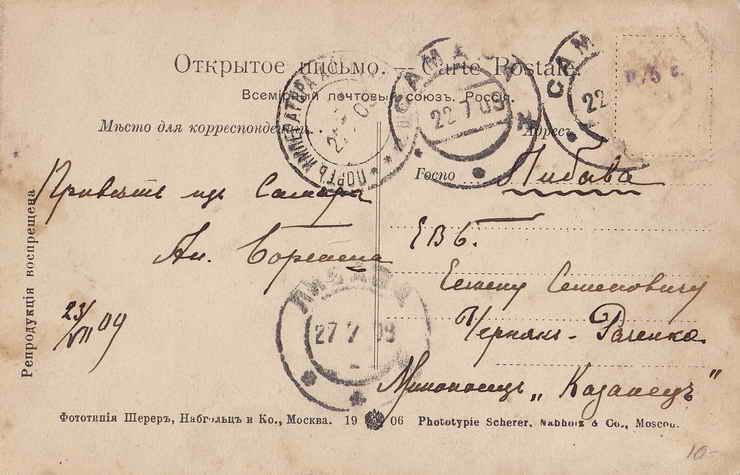 Открытое письмо. — Carte Postale.
Всемірный почтовый союзъ. Россія.
Мѣсто для корреспонденціи
Адресъ
САМАРА
22 7 09
САМ
22
ПОРТЪ ИМПЕРАТОРА
Госпо
Либава
Привѣтъ изъ Самары
Ан.
23/VII 09
ЕВБ.
Семеновичу
Миноносецъ „Казанецъ"
ЛИБАВА
27 7 09
Репродукція воспрещена
Фототипія Шереръ, Набгольцъ и Ко., Москва. 1906 Phototypie Scherer, Nabholz & Co., Moscou.
10-